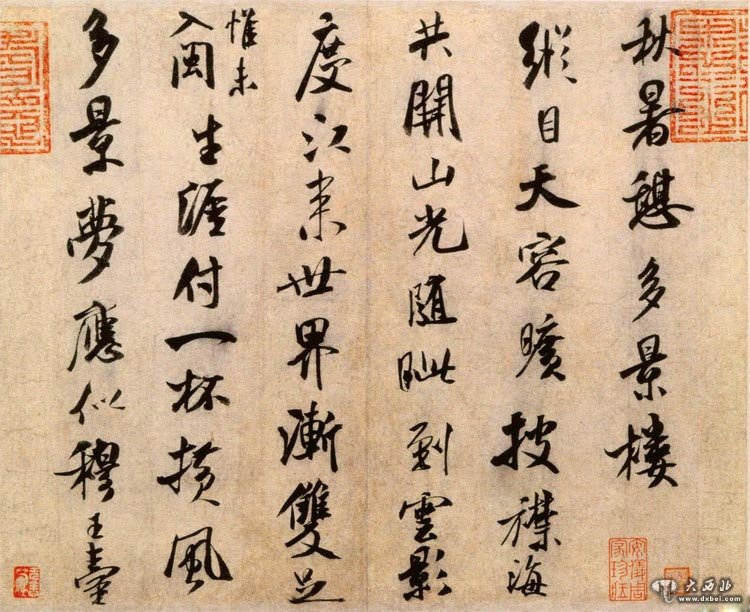 秋暑憩多景樓
縱目天容曠披襟海
共開山光隨眦到雲影
度江來世界漸雙足
惟未
入閩生涯付一杯橫風
多景夢應似穆王臺
安儀周家珍藏
大西北
www.dxbei.com